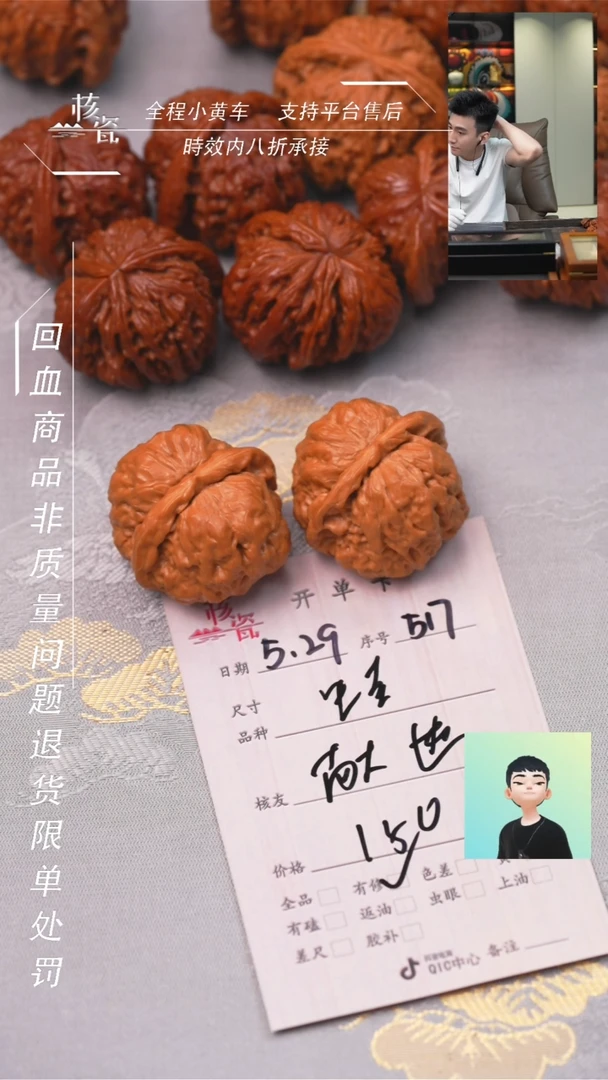 核瓷
全程小黄车 支持平台售后
時效内八折承接
回血商品非质量问题退货限单处罚
核瓷 开单卡
日期 5.29 序号 517
尺寸
品种
核友
价格 150
全品 有修 色差
有磕 返油 虫眼 上油
差尺 胶补
抖音电商
QIC中心 备注